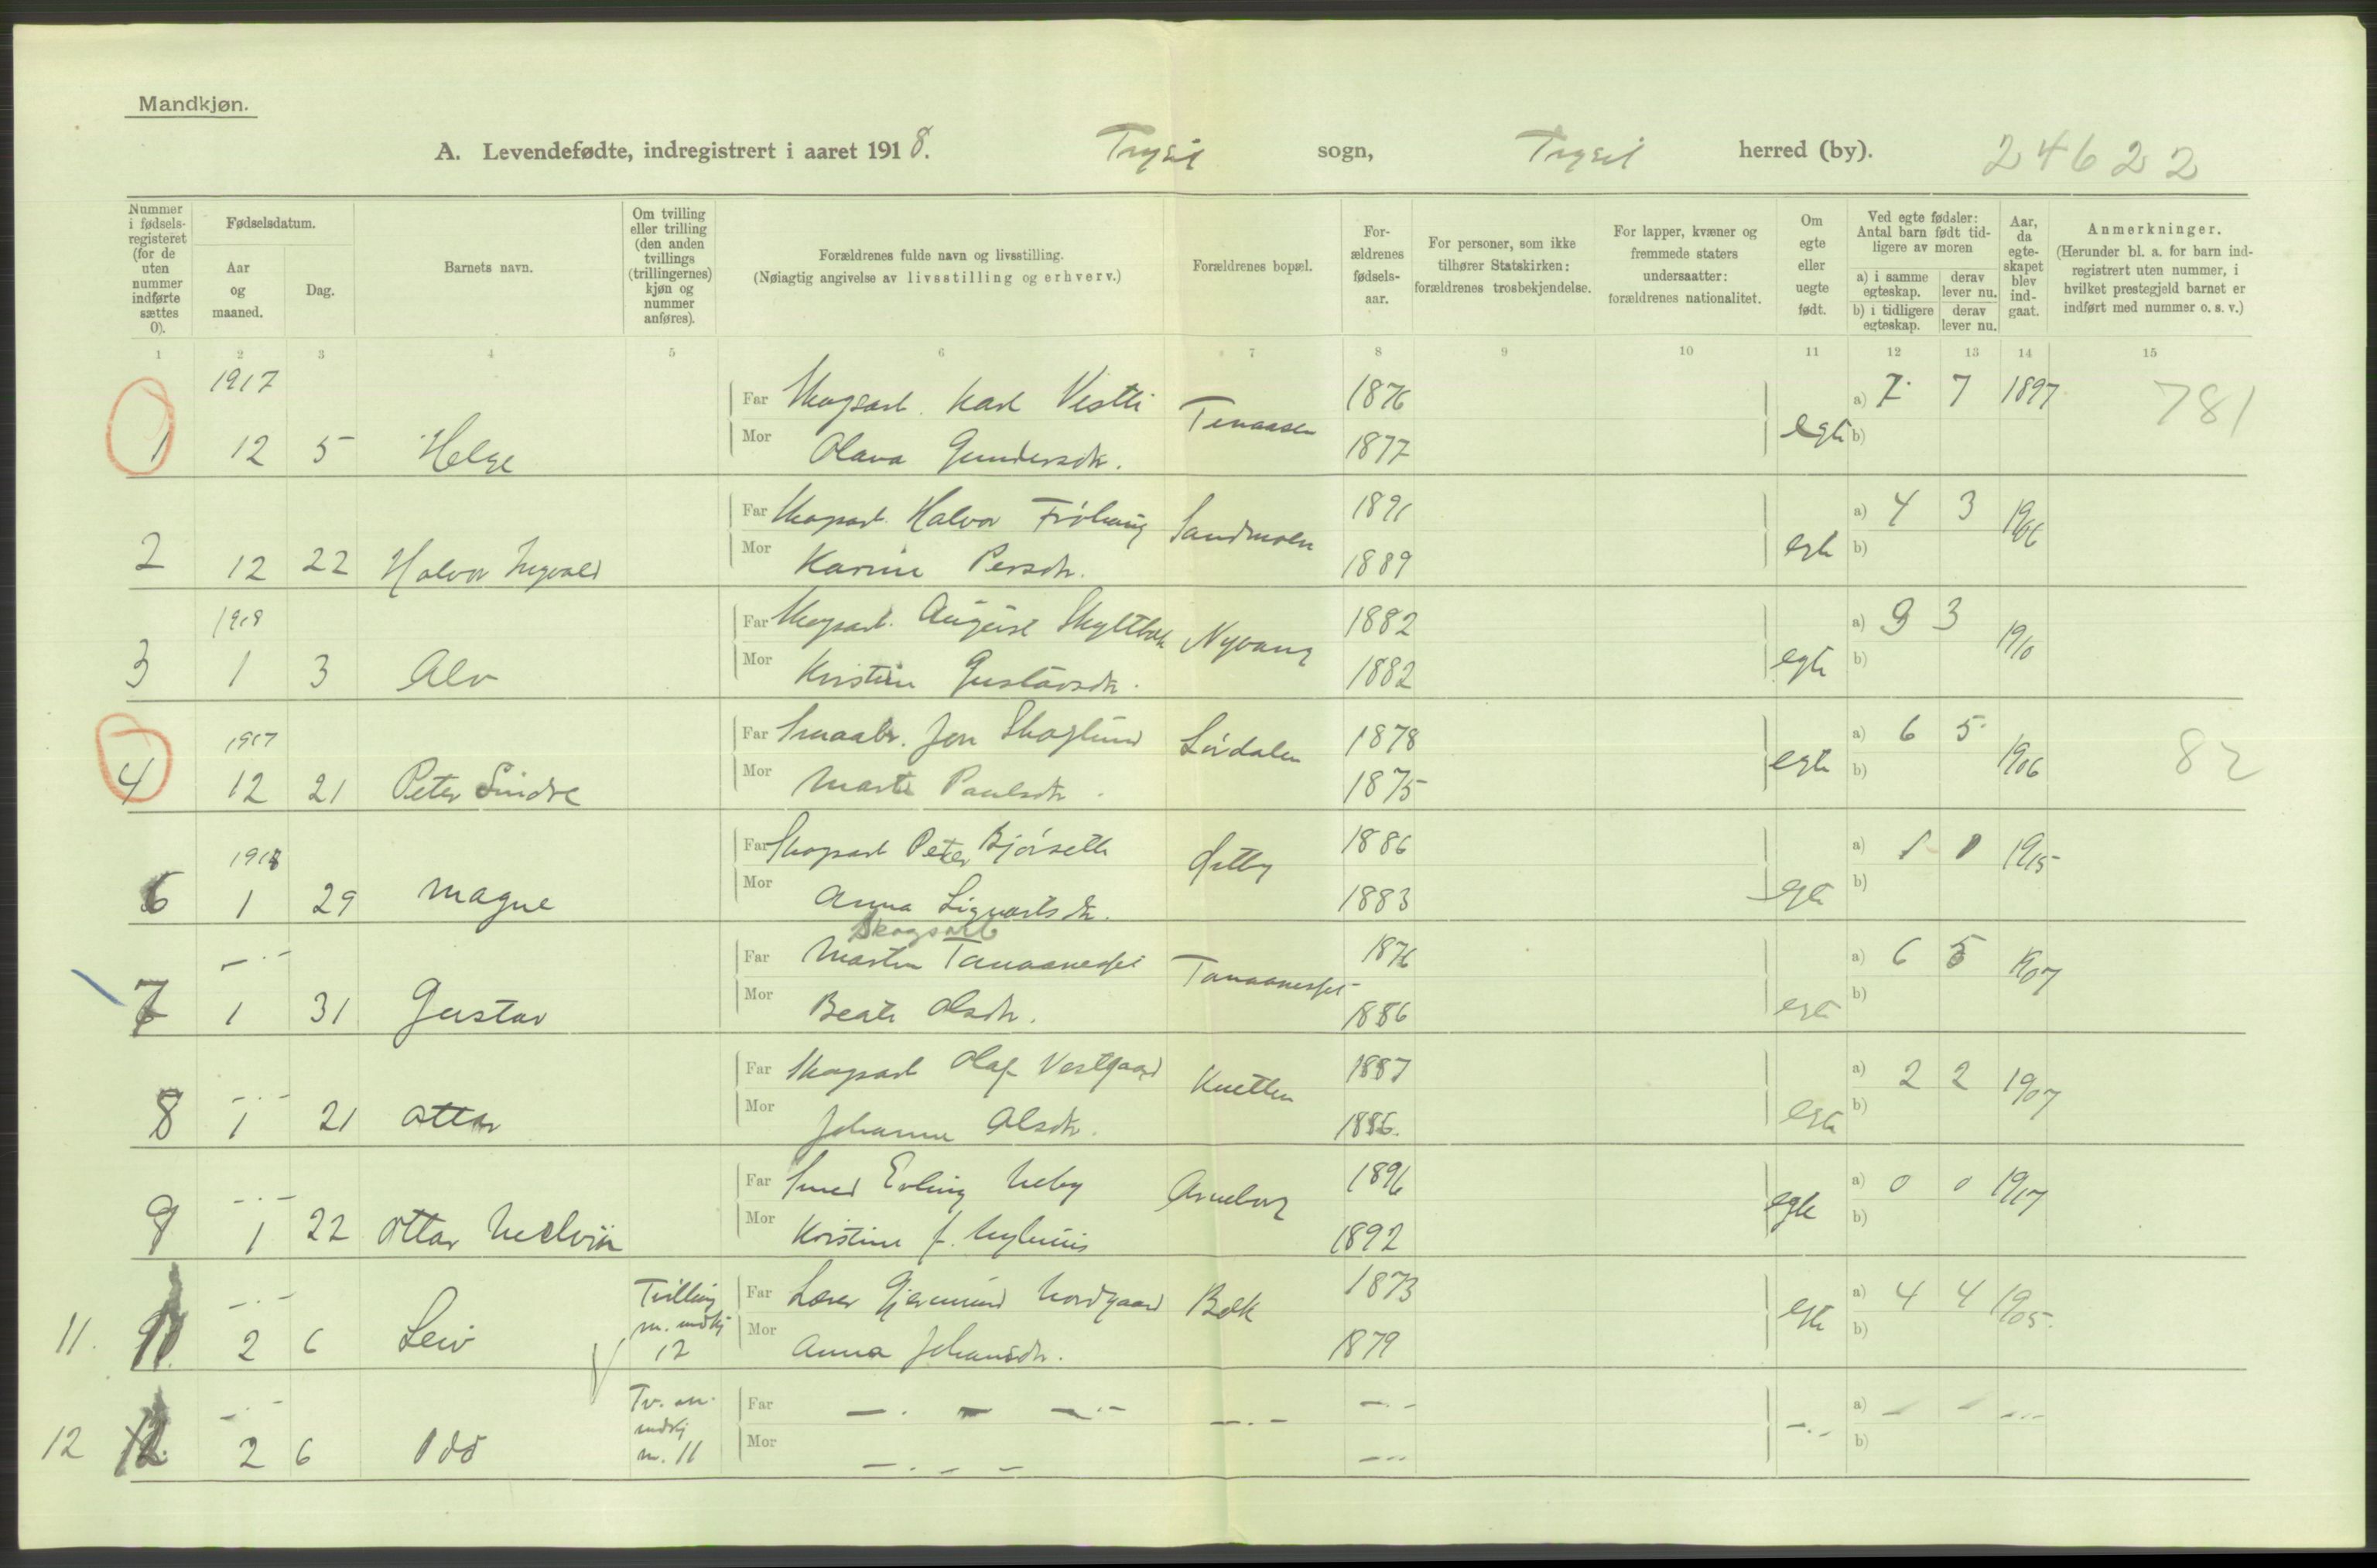 Mandkjøn.
A. Levendefødte, indregistrert i aaret 1918. Trysil sogn, Trysil herred (by). 24622
Nummer i fødsels-registeret (for de uten nummer indførte sættes 0).
Fødselsdatum.
Aar og maaned.
Dag.
Barnets navn.
Om tvilling eller trilling (den anden tvillings (trillingernes) kjøn og nummer anføres).
Forældrenes fulde navn og livsstilling.
(Nøiagtig angivelse av livsstilling og erhverv.)
Forældrenes bopæl.
For-ældrenes fødsels-aar.
For personer, som ikke tilhører Statskirken: forældrenes trosbekjendelse.
For lapper, kvæner og fremmede staters undersaatter: forældrenes nationalitet.
Om egte eller uegte født.
Ved egte fødsler: Antal barn født tid-ligere av moren
a) i samme egteskap. derav lever nu.
b) i tidligere egteskap. derav lever nu.
Aar, da egte-skapet blev ind-gaat.
Anmerkninger.
(Herunder bl. a. for barn ind-registrert uten nummer, i hvilket prestegjeld barnet er indført med nummer o. s. v.)
1 2 3 4 5 6 7 8 9 10 11 12 13 14 15
1917
Far Skogsarb. Karl Vestli 1876 a) 7 7 1897 781
1 12 5 Helge Mor Olava Gundersdtr. 1877 egte b)
Far Skogsarb. Halvor Sandmoen 1891 a) 4 3
2 12 22 Halvor Ingvald Mor Karine Persdtr. 1889 egte b)
1918
Far Skogsarb. August Nyvang 1882 a) 9 3 1910
3 1 3 Alv Mor Kristine Gustavsdtr. 1882 egte b)
1917
Far Smaabr. Jon Skoglund Lørdalen 1878 a) 6 5 1906 82
4 12 21 Peter Sindre Mor Marte Paulsdtr. 1875 egte b)
1918
Far Skogsarb Peter Bjørseth Galtby 1886 a) 1 1 1915
6 1 29 Magne Mor Anna 1883 egte b)
Skogsarb
— · — Far Martin Tanaaneset Tanaaneset 1876 a) 6 5 1907
7 1 31 Gustav Mor Beate Olsdtr. 1886 egte b)
— · — Far Skogsarb Olaf Vestgaard Knetten 1887 a) 2 2 1907
8 1 21 Ottar Mor Johanne Olsdtr. 1886. egte b)
— · — Far Smed Erling Neby Arneberg 1896 a) 0 0 1917
9 1 22 Ottar Melvin Mor Kristine f. Nyhuus 1892 egte b)
— · — Tvilling Far Lærer Gjermund Nordgaard Bæk 1873 a) 4 4 1905.
11. 11. 2 6 Leiv m. mdkj 12 Mor Anna Johansdtr. 1879 egte b)
— · — Tv. m. Far — · — — · — — · — — · — a) — — — · —
12 12. 2 6 Odd mdkj n. 11 Mor — · — — — · — — · — b)